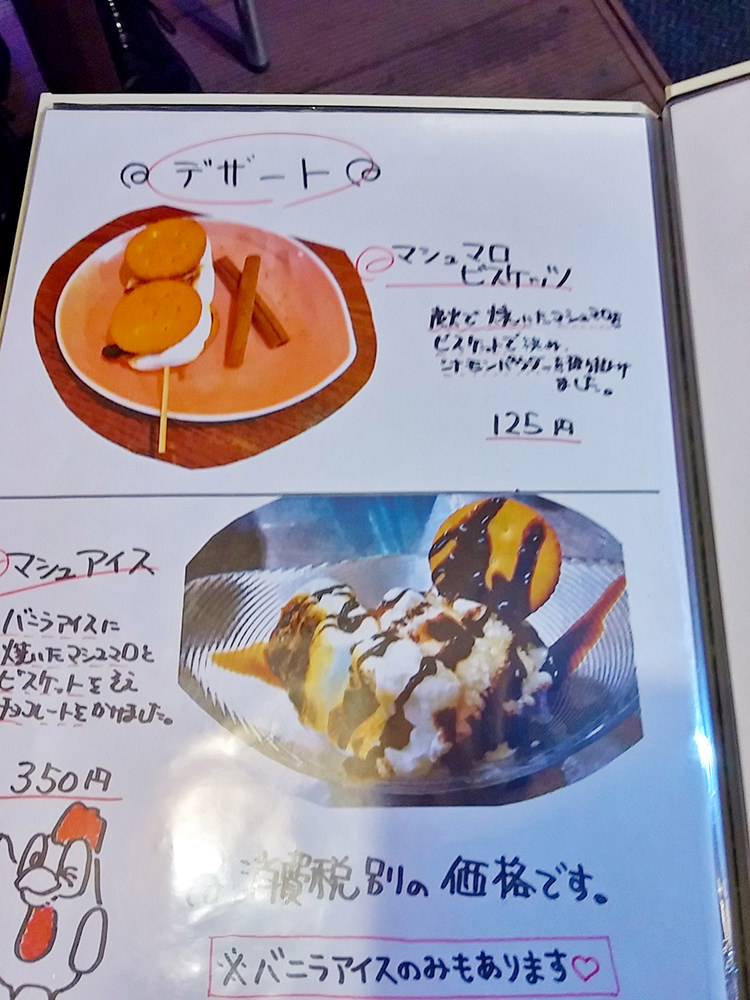 デザート
マシュマロ
ビスケッツ
炭火で焼いたマシュマロを
ビスケットで挟み、
シナモンパウダーを振りかけ
ました。
125円
マシュアイス
バニラアイスに
焼いたマシュマロと
ビスケットを添え
チョコレートをかけました。
350円
消費税別の価格です。
※バニラアイスのみもあります♡